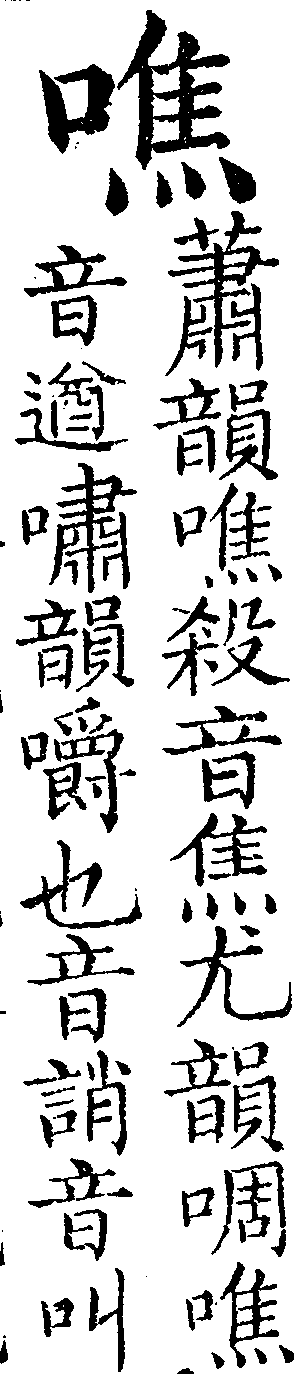 噍
蕭韻噍殺音焦尤韻啁噍
音遒嘯韻嚼也音誚音叫